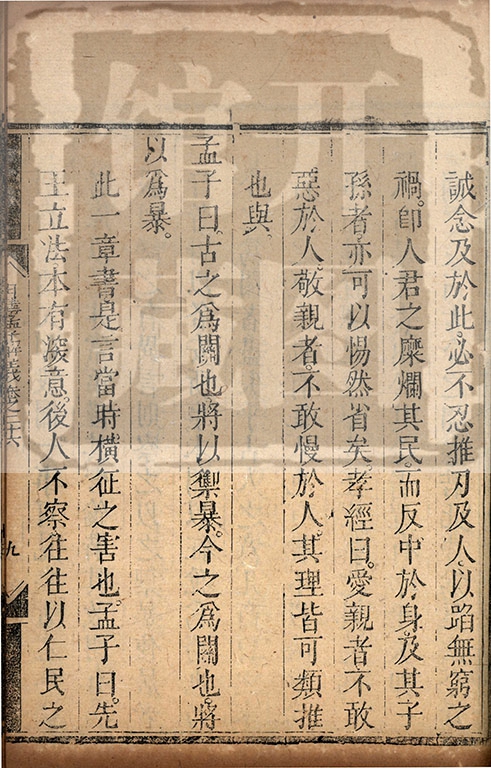 誠念及於此。必不忍推刃及人。以蹈無窮之
禍。卽人君之糜爛其民。而反中於身。及其子
孫者。亦可以惕然省矣。孝經曰。愛親者。不敢
惡於人。敬親者。不敢慢於人。其理皆可類推
也與。
孟子曰。古之爲關也。將以禦暴。今之爲關也。將
以爲暴。
此一章書。是言當時橫征之害也。孟子曰。先
王立法。本有深意。後人不察。往往以仁民之
日講孟子解義卷之二十六
九